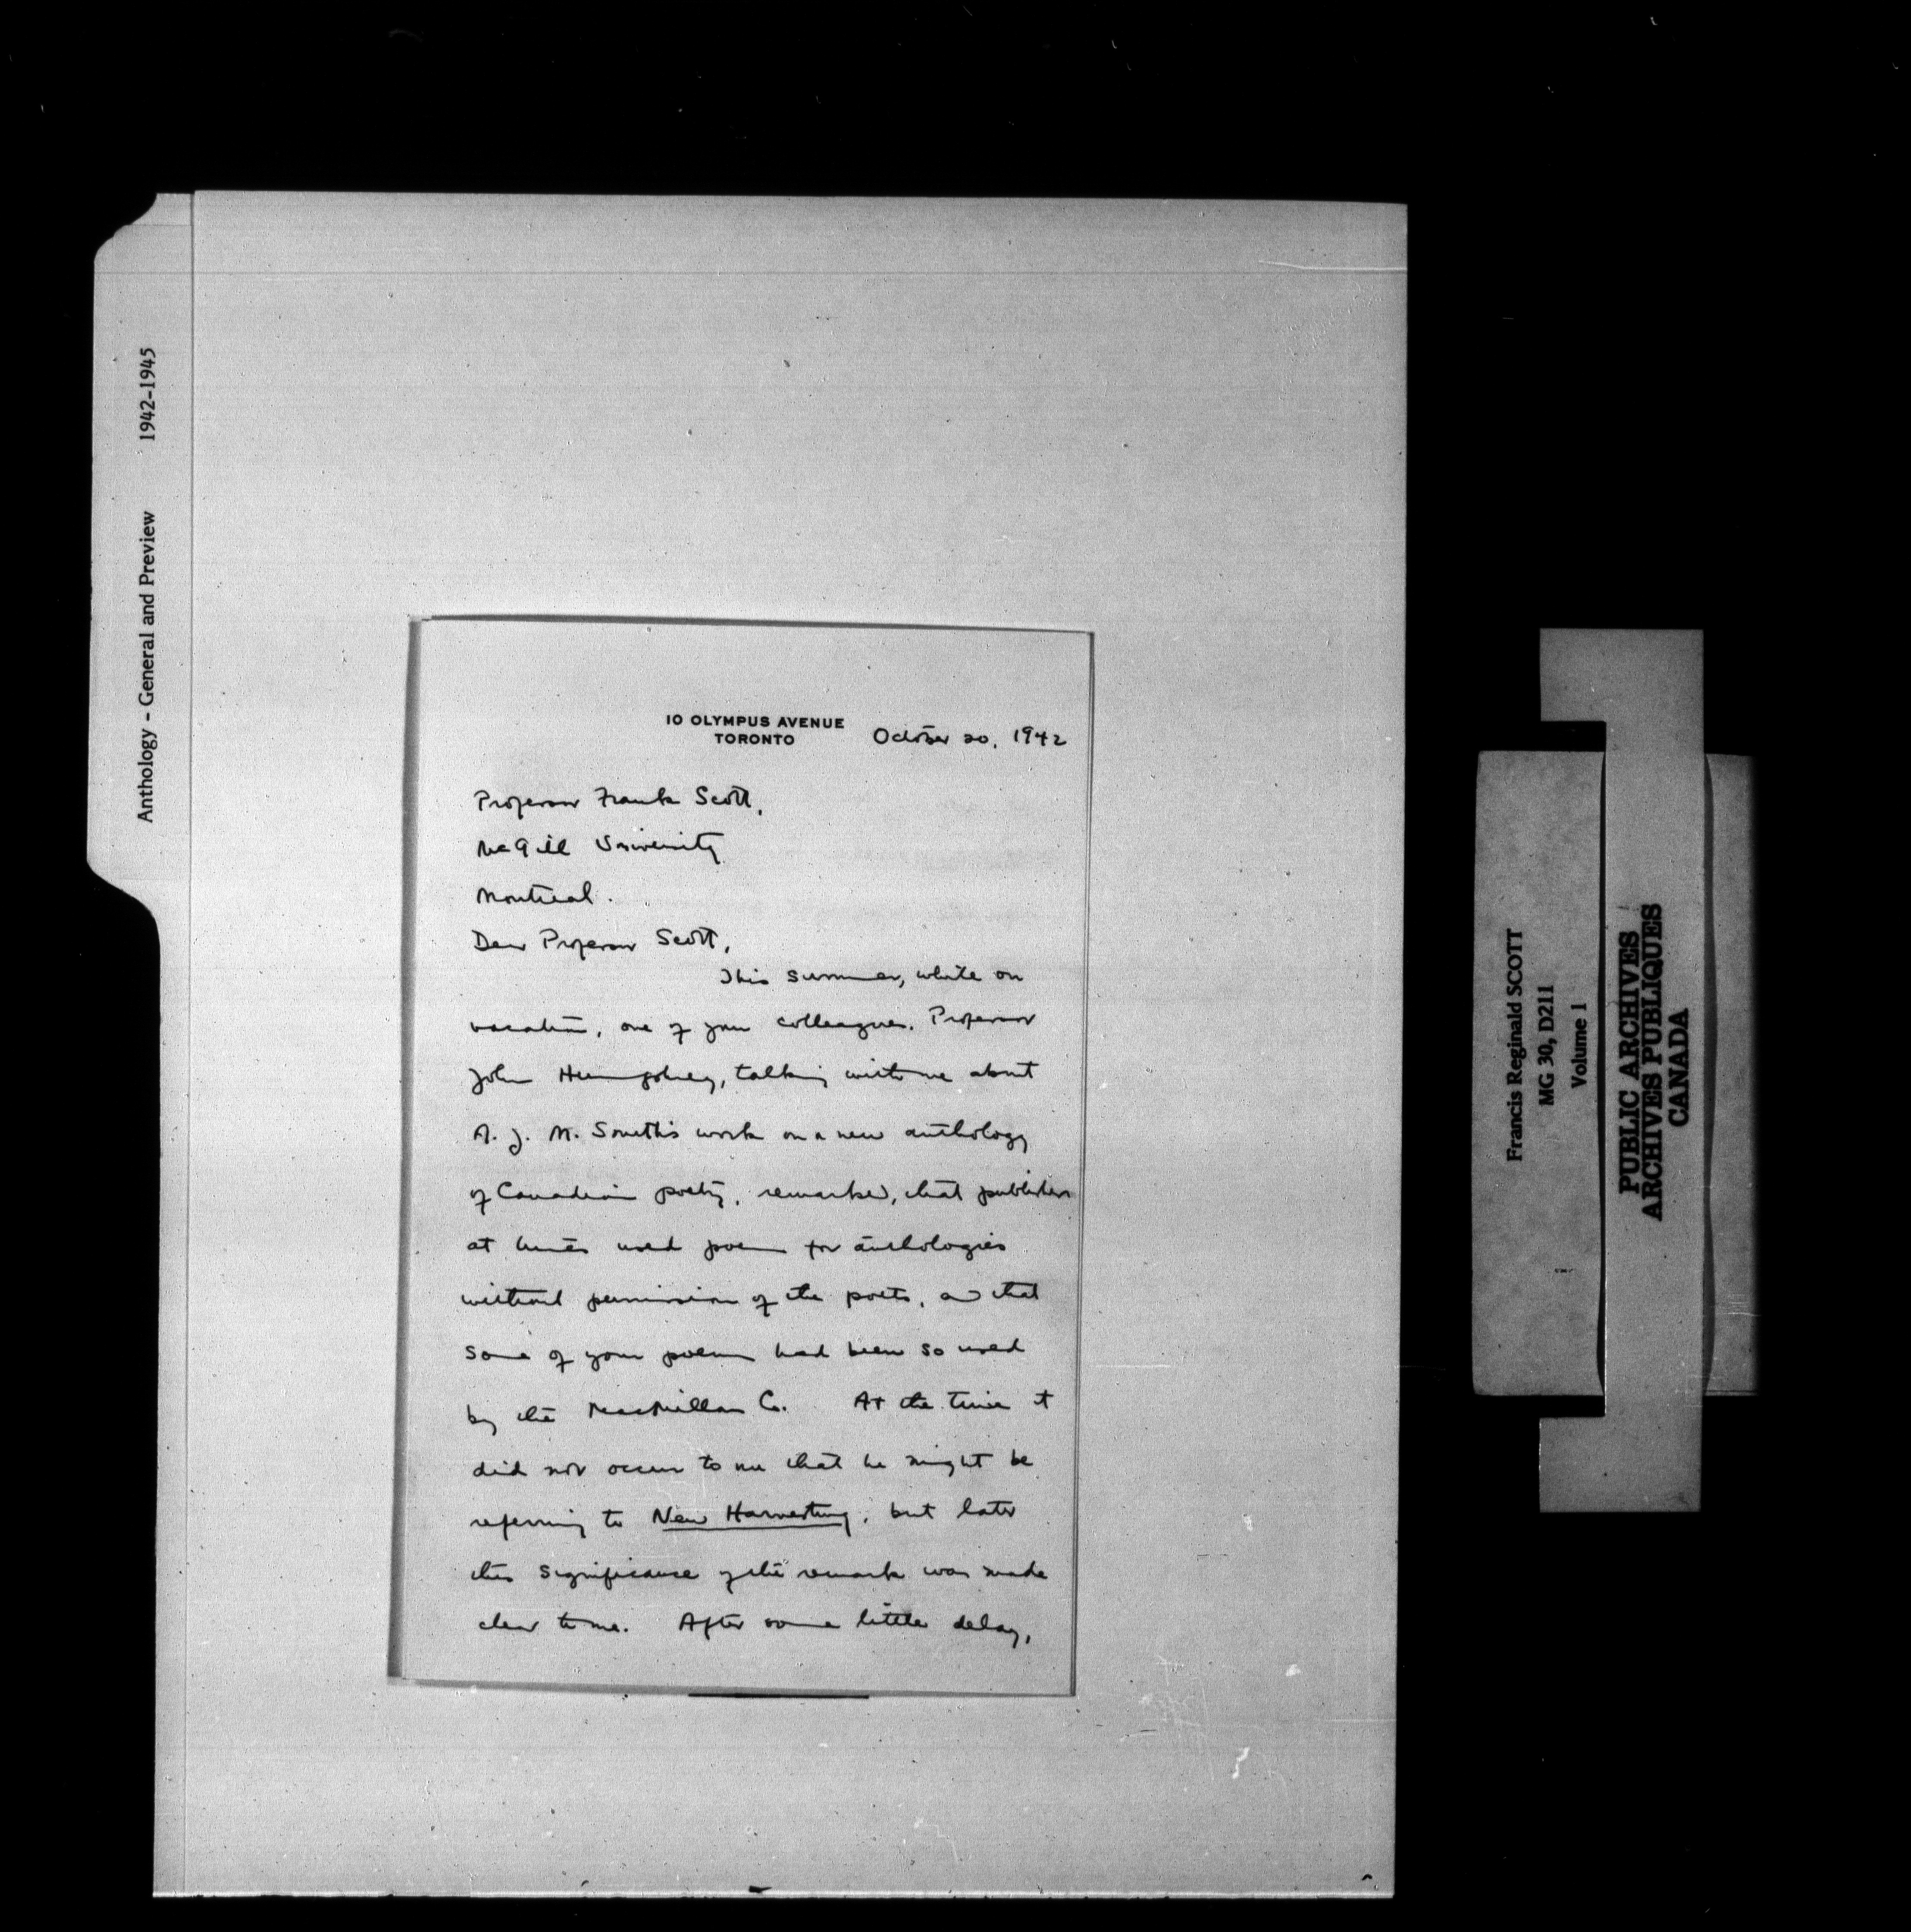 Anthology - General and Preview 1942-1945
10 OLYMPUS AVENUE
TORONTO
October 20, 1942
Professor Frank Scott,
McGill University
Montreal.
Dear Professor Scott,
This summer, while on
vacation, one of your colleagues, Professor
John Humphrey, talking with me about
A. J. M. Smith's work on a new anthology
of Canadian poetry, remarked, that publishers
at times used poems for anthologies
without permission of the poets, and that
some of your poems had been so used
by the MacMillan Co. At the time it
did not occur to me that he might be
referring to New Harvesting, but later
the significance of the remark was made
clear to me. After some little delay,
Francis Reginald SCOTT
MG 30, D211
Volume 1
PUBLIC ARCHIVES
ARCHIVES PUBLIQUES
CANADA